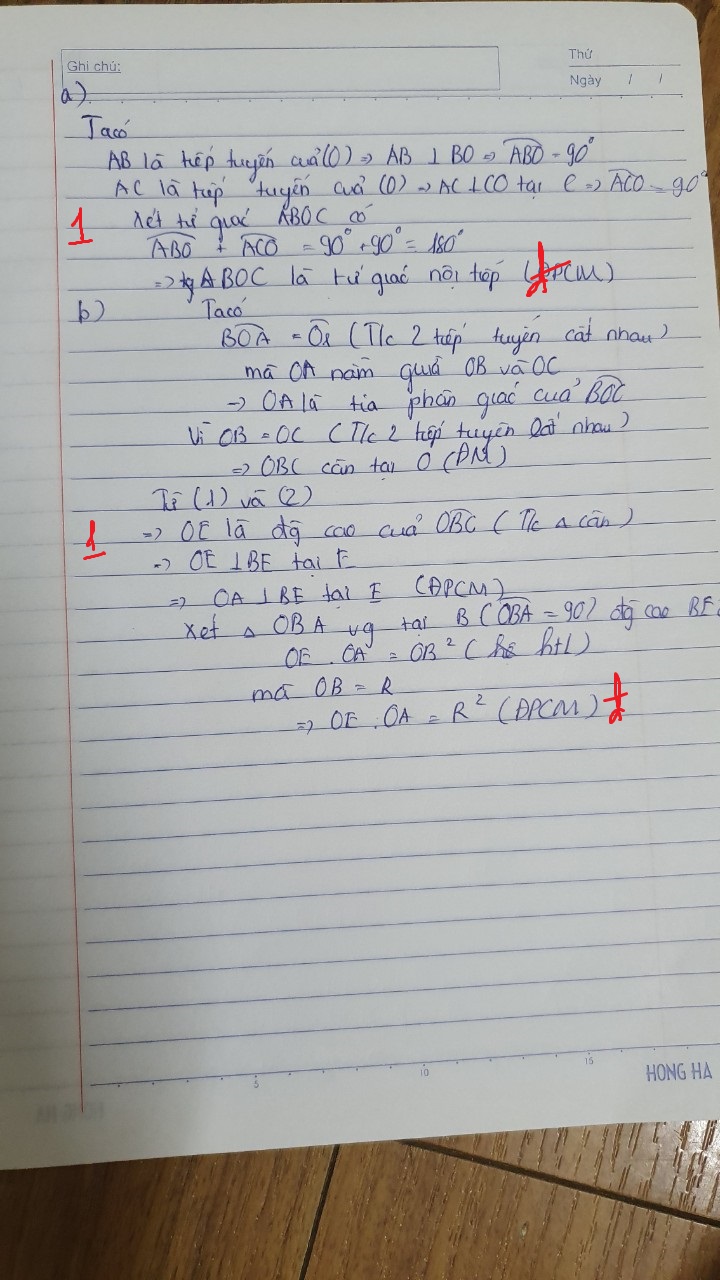 Ghi chú:
Thứ
Ngày / /
a)
Ta có
AB là tiếp tuyến cuả (O) => AB ⊥ BO => ABO = 90°
AC là tiếp tuyến cuả (O) => AC ⊥ CO tại C => ACO = 90°
1
Xét tứ giác ABOC có
ABO + ACO = 90° + 90° = 180°
=> tg ABOC là tứ giác nội tiếp (ĐPCM)
b) Ta có
BOA = (T/c 2 tiếp tuyến cắt nhau)
mà OA nằm giữa OB và OC
=> OA là tia phân giác cuả BOC
Vì OB = OC (T/c 2 tiếp tuyến cắt nhau)
=> OBC cân tại O
Từ (1) và (2)
1
=> OE là đg cao cuả OBC (T/c Δ cân)
=> OE ⊥ BE tại E
=> OA ⊥ BE tại E (ĐPCM)
Xét Δ OBA vg tại B (OBA = 90) đg cao BE:
OE . OA = OB² ( htl)
mà OB = R
=> OE . OA = R² (ĐPCM)
5 10 15
HONG HA